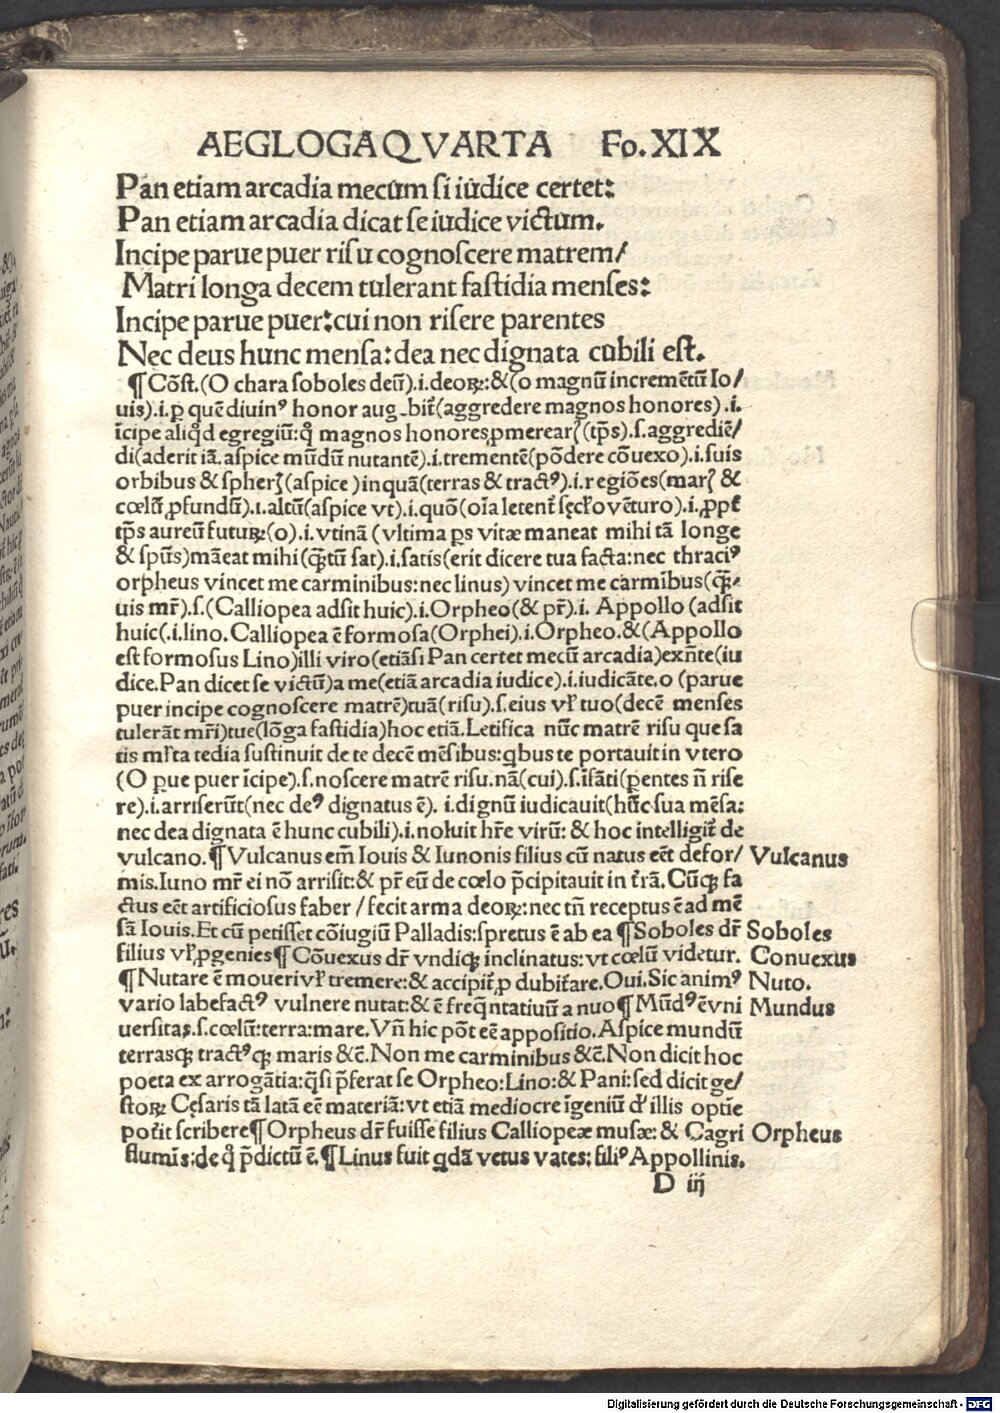 AEGLOGA QVARTA Fo.XIX
Pan etiam arcadia mecum si iudice certet:
Pan etiam arcadia dicat se iudice victum.
Incipe parue puer risu cognoscere matrem/
Matri longa decem tulerant fastidia menses:
Incipe parue puer: cui non risere parentes
Nec deus hunc mensa: dea nec dignata cubili est.
¶ Cõst.(O chara soboles deũ).i.deoꝝ:&(o magnũ incremẽtũ Io/
uis).i.ꝑ quẽ diuinꝰ honor augebit̃(aggredere magnos honores).i.
ĩcipe aliqd̃ egregiũ: q̃ magnos honores ꝓmerearꝭ(tp̃s).s.aggrediẽ/
di(aderit iã. aspice mũdũ nutantẽ).i.trementẽ(põdere cõuexo).i.suis
orbibus & spherꝭ(aspice)inquã(terras & tractꝰ).i.regiões(marꝭ &
cœlũ ꝓfundũ).i.altũ(aspice vt).i.quõ(oĩa letent̃ sęcl̃o vẽturo).i.ꝓpt̃
tp̃s aureũ futuꝝ(o).i.vtinã (vltima ꝑs vitæ maneat mihi tã longe
& spũs)mãeat mihi(quãtũ sat).i.satis(erit dicere tua facta: nec thraciꝰ
orpheus vincet me carminibus: nec linus) vincet me carmĩbus(quã/
uis mr̃).s.(Calliopea adsit huic).i.Orpheo(& pr̃).i. Appollo (adsit
huic(.i.lino. Calliopea ẽ formosa(Orphei).i.Orpheo.&(Appollo
est formosus Lino)illi viro(etiãsi Pan certet mecũ arcadia)exñte(iu
dice. Pan dicet se victũ)a me(etiã arcadia iudice).i.iudicãte. o (parue
puer incipe cognoscere matrẽ)tuã(risu).s.eius vl̃ tuo(decẽ menses
tulerãt mr̃i)tue(lõga fastidia)hoc etiã. Letifica nũc matrẽ risu que sa
tis ml̃ta tedia sustinuit de te decẽ mẽsibus: qbus te portauit in vtero
(O ꝑue puer ĩcipe).s.noscere matrẽ risu. nã(cui).s.ĩfãti(ꝑentes ñ rise
re).i.arriserũt(nec deꝰ dignatus ẽ). i.dignũ iudicauit(hũc sua mẽsa:
nec dea dignata ẽ hunc cubili).i.noluit hr̃e virũ: & hoc intelligit̃ de
vulcano. ¶ Vulcanus em̃ Iouis & Iunonis filius cũ natus eẽt defor/ Vulcanus
mis. Iuno mr̃ ei nõ arrisit: & pr̃ eũ de cœlo p̃cipitauit in t̃rã. Cũqꝫ fa
ctus eẽt artificiosus faber / fecit arma deoꝝ: nec tñ receptus ẽ ad mẽ
sã Iouis. Et cũ petisset cõiugiũ Palladis: spretus ẽ ab ea ¶ Soboles dr̃ Soboles
filius vl̃ ꝓgenies ¶ Cõuexus dr̃ vndiqꝫ inclinatus: vt cœlũ videtur. Conuexus
¶ Nutare ẽ moueri vl̃ tremere: & accipit̃ ꝓ dubit̃are. Oui. Sic animꝰ Nuto.
vario labefactꝰ vulnere nutat: & ẽ freq̃ntatiuũ a nuo ¶ Mũdꝰ ẽ vni Mundus
uersitas. s.cœlũ: terra: mare. Vñ hic põt eẽ appositio. Aspice mundũ
terrasqꝫ tractꝰqꝫ maris &c̃. Non me carminibus &c̃. Non dicit hoc
poeta ex arrogãtia: q̃si p̃ferat se Orpheo: Lino: & Pani: sed dicit ge/
stoꝝ Cęsaris tã latã eẽ materiã: vt etiã mediocre ĩgeniũ d̃ illis optie
pot̃it scribere ¶ Orpheus dr̃ fuisse filius Calliopeæ musæ: & Cagri Orpheus
flumĩs: de q̃ p̃dictũ ẽ. ¶ Linus fuit qdã vetus vates: filiꝰ Appollinis.
D iij
Digitalisierung gefördert durch die Deutsche Forschungsgemeinschaft - DFG